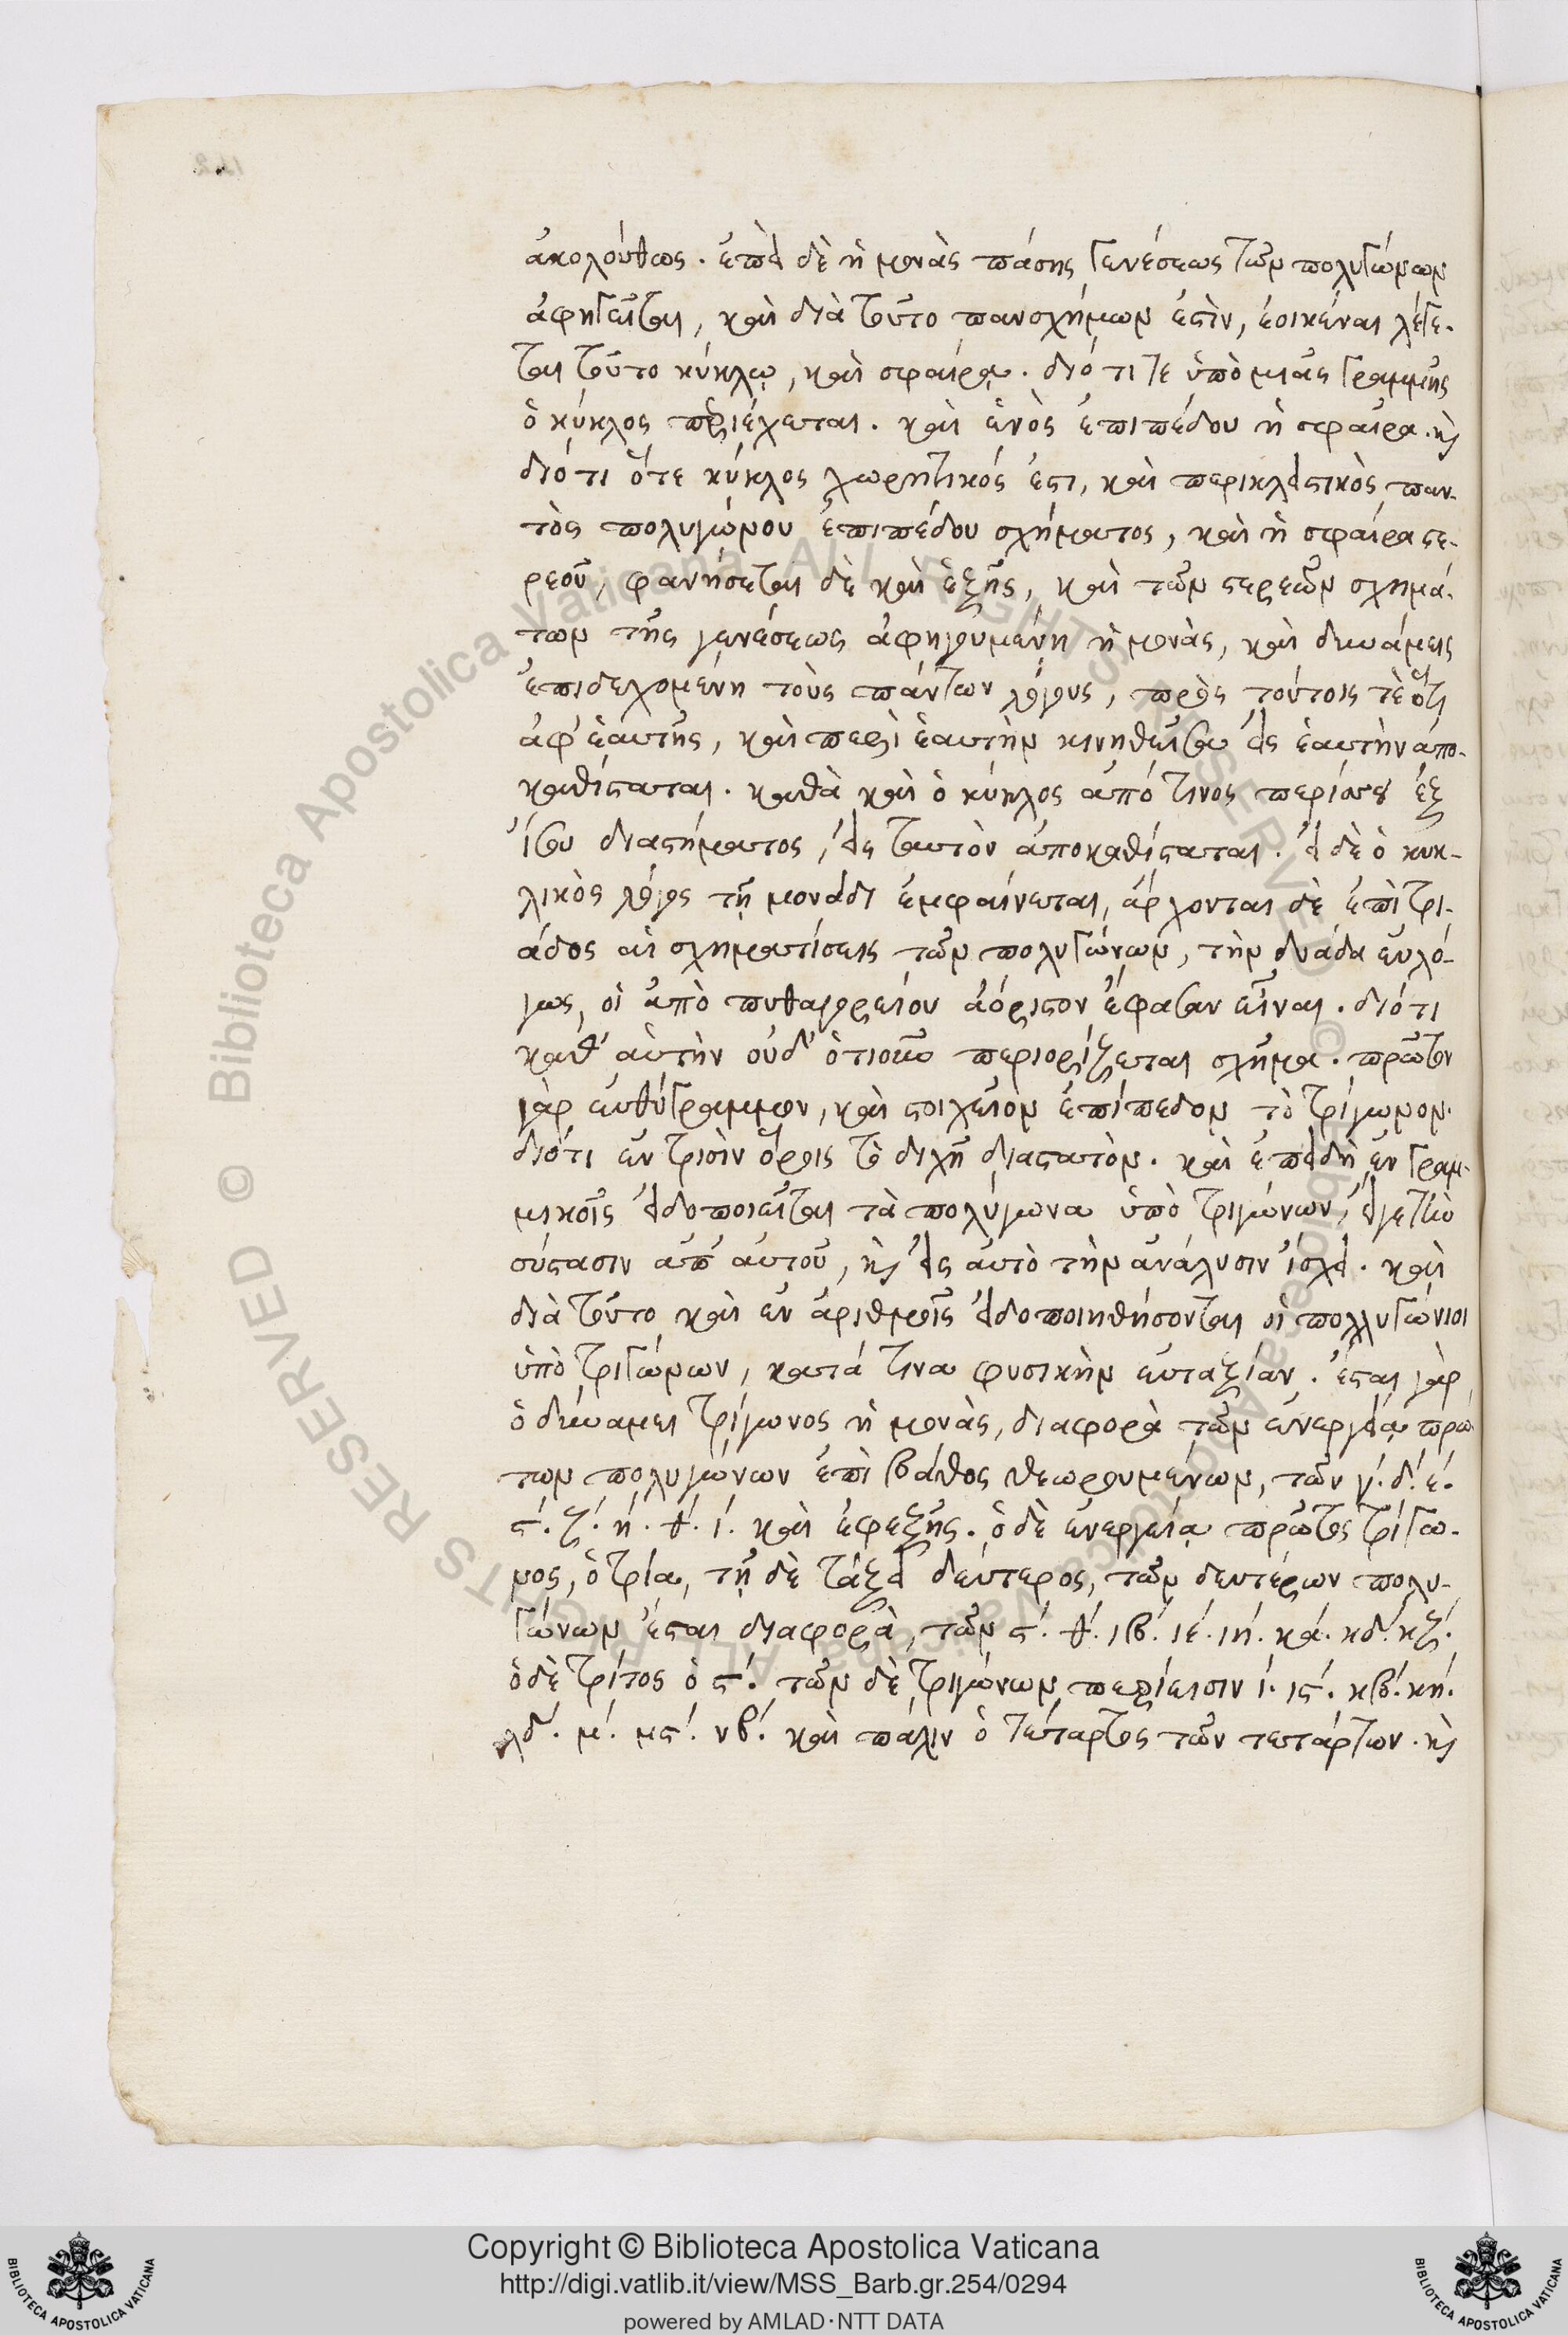 ἀκολούθως. ἐπεὶ δὲ ἡ μονὰς πάσης γενέσεως τῶν πολυγώνων
ἀφηγεῖται, καὶ διὰ τοῦτο πανσχήμων ἐστὶν, ἐοικέναι λέγε-
ται τοῦτο κύκλῳ, καὶ σφαίρᾳ. διότι τε ὑπὸ μιᾶς γραμμῆς
ὁ κύκλος περιέχεται. καὶ ἑνὸς ἐπιπέδου ἡ σφαῖρα. καὶ
διότι ὅτε κύκλος χωρητικός ἐστι, καὶ περικλειστικὸς παν-
τὸς πολυγώνου ἐπιπέδου σχήματος, καὶ ἡ σφαίρα στε-
ρεοῦ, φανήσεται δὲ καὶ ἑξῆς, καὶ τῶν στερεῶν σχημά-
των τῆς γενέσεως ἀφηγουμένη ἡ μονὰς, καὶ δυνάμεις
ἐπιδεχομένη τοὺς πάντων λόγους, πρὸς τούτοις τὲ ὅτι
ἀφ' ἑαυτῆς, καὶ περὶ ἑαυτὴν κινηθεῖσα εἰς ἑαυτὴν ἀπο-
καθίσταται. καθὰ καὶ ὁ κύκλος ἀπό τινος περιόσου ἐξ
ἴσου διαστήματος, εἰς ταυτὸν ἀποκαθίσταται. εἰ δὲ ὁ κυκ-
λικὸς λόγος τῇ μονάδι ἐμφαίνεται, ἄρχονται δὲ ἐπὶ τρι-
άδος αἱ σχηματίσεις τῶν πολυγώνων, τὴν δυάδα εὐλό-
γως, οἱ ἀπὸ πυθαγορείου ἀόριστον ἔφασαν εἶναι. διότι
καθ' αὑτὴν οὐδ' ὁτιοῦν περιορίζεται σχῆμα. πρῶτον
γὰρ εὐθύγραμμον, καὶ στοιχεῖον ἐπίπεδον τὸ τρίγωνον.
διότι ἐν τρισὶν ὅροις τὸ διχῆ διαστατὸν. καὶ ἐπειδὴ ἐν γραμ-
μικοῖς εἰδοποιεῖται τὰ πολύγωνα ὑπὸ τριγώνων, εἴγε τὴν
σύστασιν ἀπ' αὐτοῦ, καὶ εἰς αὐτὸ τὴν ἀνάλυσιν ἴσχει. καὶ
διὰ τοῦτο καὶ ἐν ἀριθμοῖς εἰδοποιηθήσονται οἱ πολλυγώνιοι
ὑπὸ τριγώνων, κατά τινα φυσικὴν εὐταξίαν. ἔσται γὰρ
ὁ δυνάμει τρίγωνος ἡ μονὰς, διαφορὰ τῶν ἐνεργείᾳ πρώ
των πολυγώνων ἐπὶ βάθος θεωρουμένων, τῶν γ΄. δ΄. ε΄.
ϛ΄. ζ΄. η΄. θ΄. ι΄. καὶ ἐφεξῆς. ὁ δὲ ἐνεργείᾳ πρῶτος τρίγω-
νος, ὁ τρία, τῇ δὲ τάξει δεύτερος, τῶν δευτέρων πολυ-
γώνων ἔσται διαφορὰ, τῶν ϛ΄. θ΄. ιβ΄. ιε΄. ιη΄. κα΄. κδ΄. κζ΄.
ὁ δὲ τρίτος ὁ ϛ΄. τῶν δὲ τριγώνων περίεισιν ι΄. ιϛ΄. κβ΄. κη΄.
λδ΄. μ΄. μϛ΄. νβ΄. καὶ πάλιν ὁ τέταρτος τῶν τετάρτων. καὶ
Copyright © Biblioteca Apostolica Vaticana
http://digi.vatlib.it/view/MSS_Barb.gr.254/0294
powered by AMLAD·NTT DATA
BIBLIOTECA APOSTOLICA VATICANA
BIBLIOTECA APOSTOLICA VATICANA
© Biblioteca Apostolica Vaticana ALL RIGHTS RESERVED
© Biblioteca Apostolica Vaticana ALL RIGHTS RESERVED